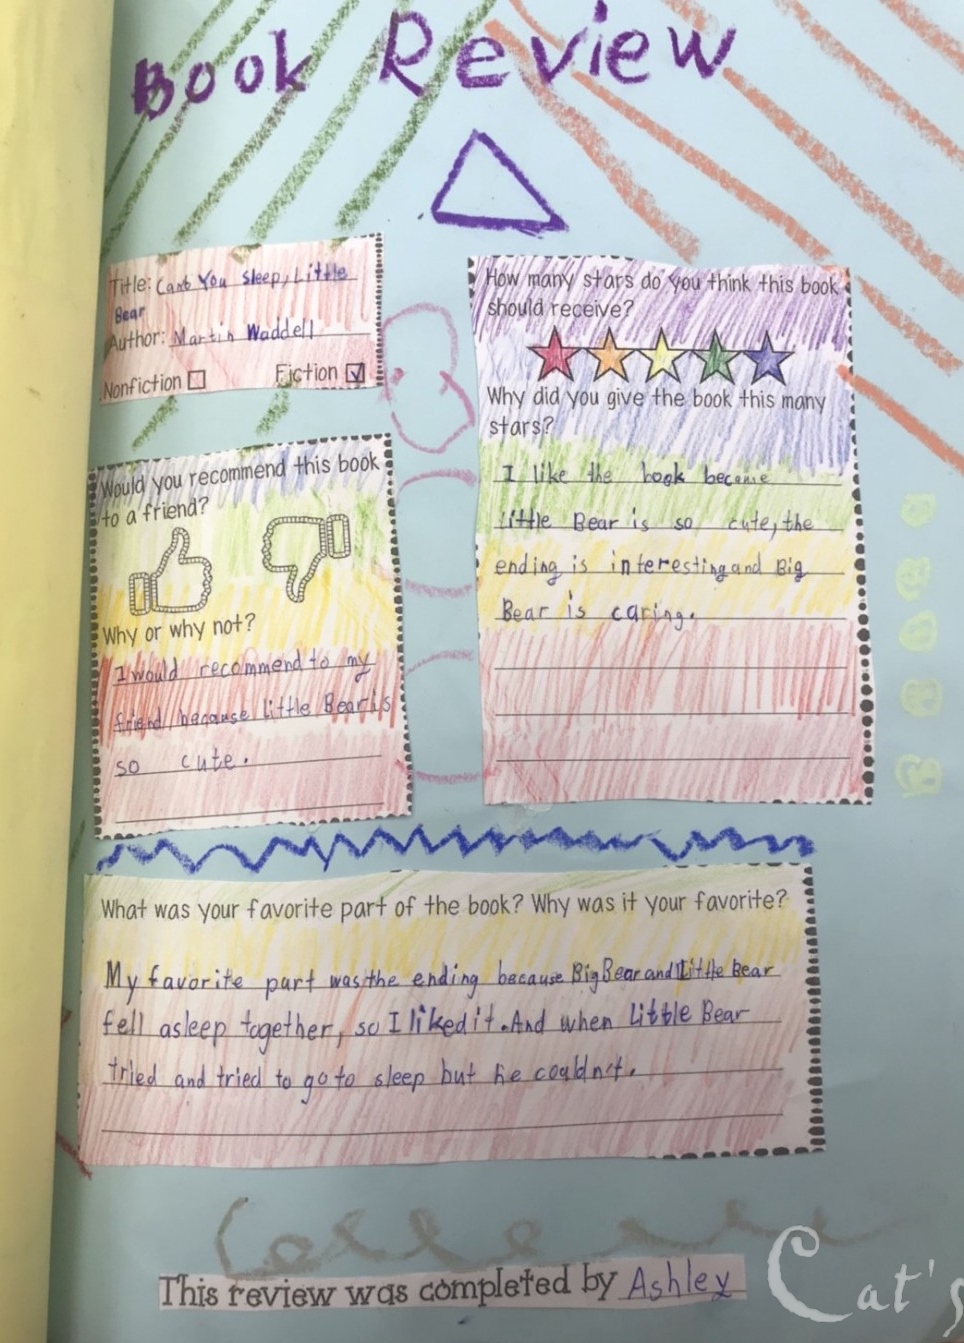 Book Review
Title: Can't You Sleep, Little
Bear
Author: Martin Waddell
Nonfiction
Fiction
How many stars do you think this book
should receive?
Why did you give the book this many
stars?
I like the book because
little Bear is so cute, the
ending is interesting and Big
Bear is caring.
Would you recommend this book
to a friend?
Why or why not?
I would recommend to my
friend because little Bear is
so cute.
What was your favorite part of the book? Why was it your favorite?
My favorite part was the ending because Big Bear and Little Bear
fell asleep together, so I liked it. And when Little Bear
tried and tried to go to sleep but he couldn't.
This review was completed by Ashley
Cat's